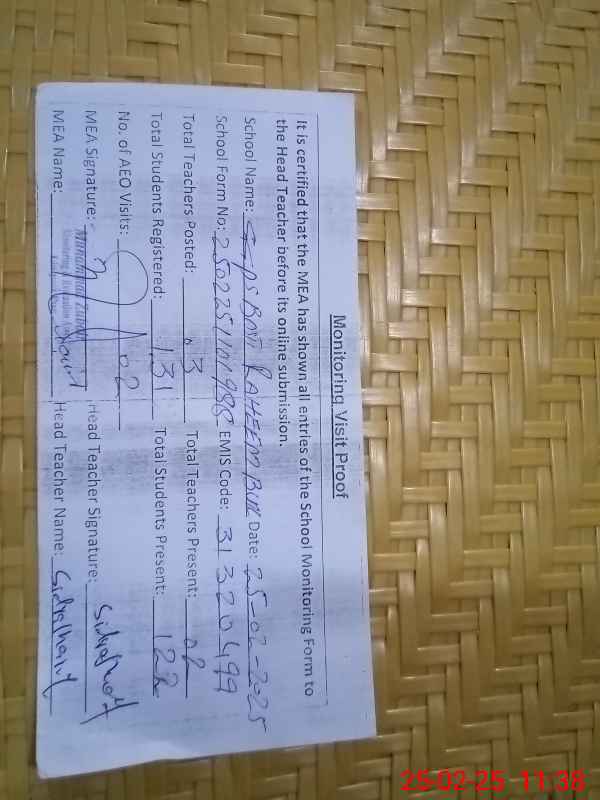 Monitoring Visit Proof
It is certified that the MEA has shown all entries of the School Monitoring Form to
the Head Teacher before its online submission.
School Name: GPS BASTI RAHEEM BUX Date: 25-02-2025
School Form No: 2502251101988 EMIS Code: 31320499
Total Teachers Posted: 03 Total Teachers Present: 02
Total Students Registered: 131 Total Students Present: 122
No. of AEO Visits: 02
MEA Signature: Head Teacher Signature:
Muhammad
MEA Name: Head Teacher Name:
25-02-25 11:38